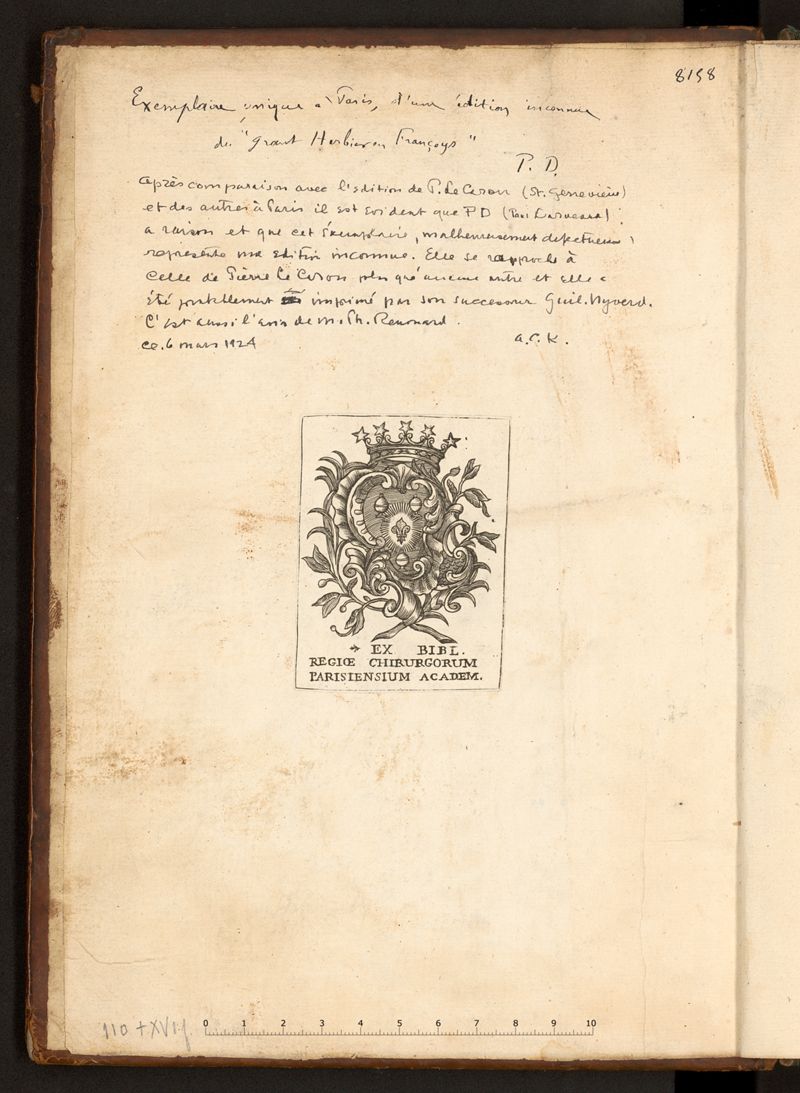 8158
Exemplaire unique à Paris, d'une édition inconnue
du "grant Herbier en Françoys"
P. D.
après comparaison avec l'edition de P. Le Caron (St. Genevieve)
et des autres à Paris il est evident que PD (Paul Dorveaux)
a raison et que cet exemplaire, malheureusement defectueux,
represente une edition inconnue. Elle se rapproche à
celle de Pierre Le Caron plus qu'aucune autre et elle a
été imprimé par son successeur Guil. Nyverd.
C'est aussi l'avis de M. Ph. Renouard.
ce. 6 mars 1924
a. C. K.
EX BIBL.
REGIŒ CHIRURGORUM
PARISIENSIUM ACADEM.
110 + XVI f.
0 1 2 3 4 5 6 7 8 9 10